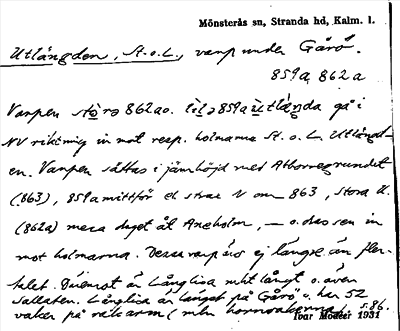 Mönsterås sn, Stranda hd, Kalm. l.
Utlängden, St. o. L., varp under Gårö.
859a, 862a
Varpen 862ao. 859a gå i
NV riktning in mot resp. holmarna St. o. L. Utlängd-
en. Varpen sättas i jämhöjd med Abborregrundet
(863), 859a mittför el. strax N om 863, Stora U.
(862a) mera draget åt Axeholm, – o. dras sen in
mot holmarna. Dessa varp äro ej längre än fler-
talet. Däremot är Långlisa rakt långt o. även
Långlisa är längst på Gårö o. har 52
vaker på (mln s. 86.
Ivar Modéer 1931